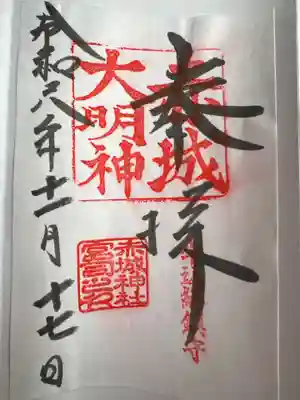 奉拝
赤城
大明神
赤城神社
宮司之印
令和六年十一月十七日